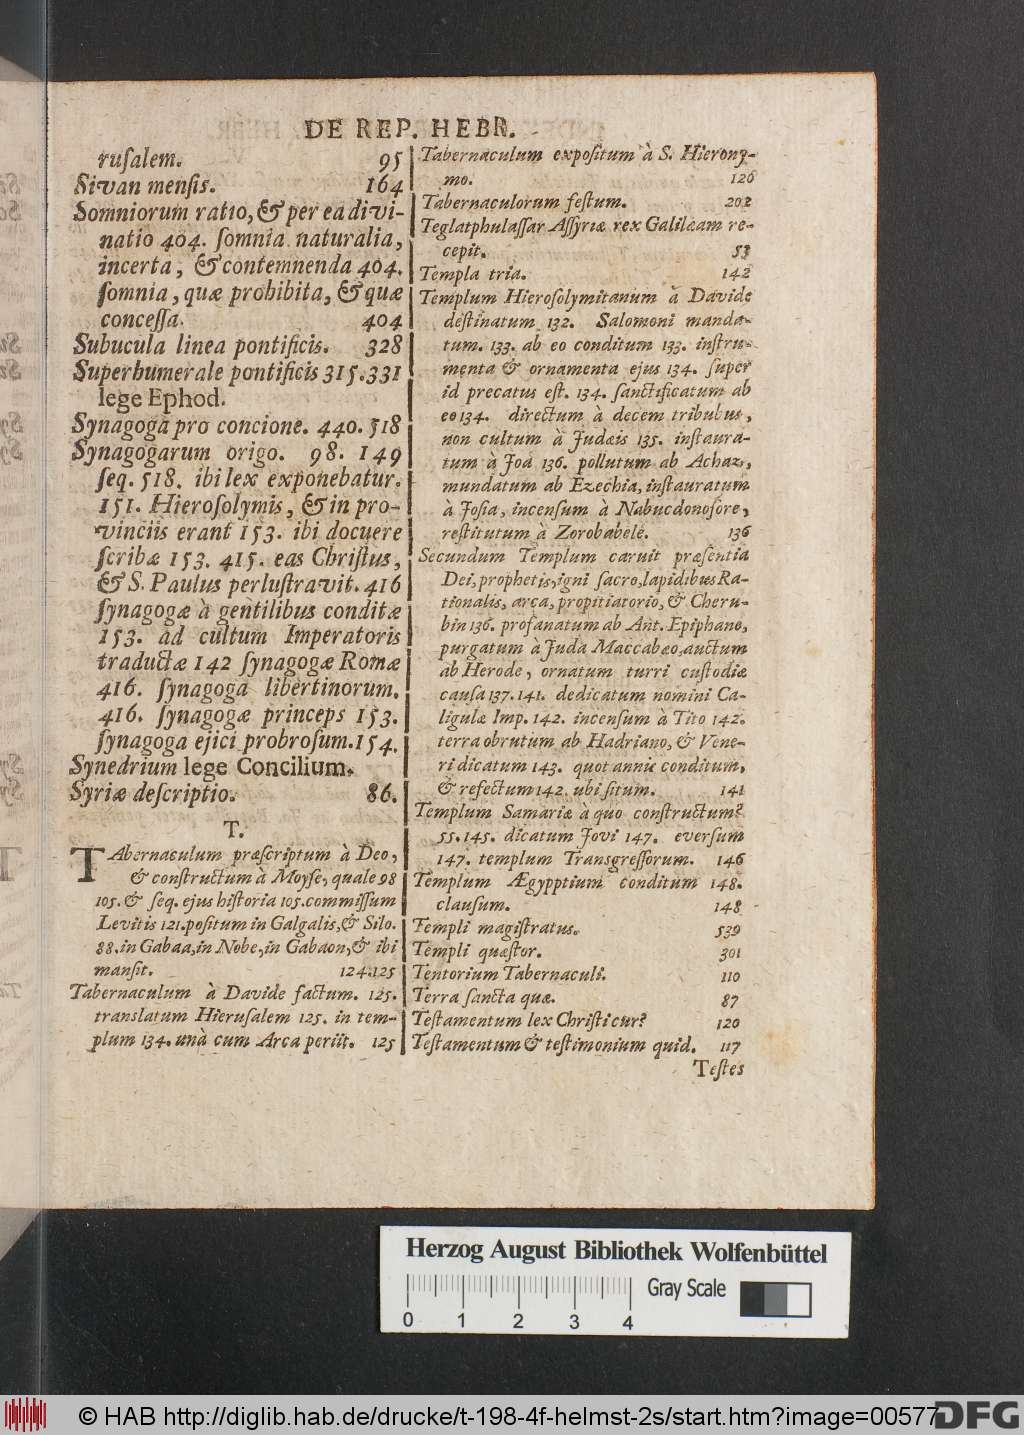 DE REP. HEBR.
ruſalem. 95
Sivan menſis. 164
Somniorum ratio, & per ea divi-
natio 404. ſomnia naturalia,
incerta, & contemnenda 404.
ſomnia, quæ prohibita, & quæ
conceſſa. 404
Subucula linea pontificis. 328
Superhumerale pontificis 315.331
lege Ephod.
Synagoga pro concione. 440. 518
Synagogarum origo. 98. 149
ſeq. 518. ibi lex exponebatur.
151. Hieroſolymis, & in pro-
vinciis erant 153. ibi docuere
ſcribæ 153. 415. eas Chriſtus,
& S. Paulus perluſtravit. 416
ſynagogæ à gentilibus conditæ
153. ad cultum Imperatoris
traductæ 142 ſynagogæ Romæ
416. ſynagoga libertinorum.
416. ſynagogæ princeps 153.
ſynagoga ejici probroſum. 154.
Synedrium lege Concilium.
Syriæ deſcriptio. 86.
T.
TAbernaculum præſcriptum à Deo,
& conſtructum à Moyſe, quale 98
105. & ſeq. ejus hiſtoria 105. commiſſum
Levitis 121. poſitum in Galgalis, & Silo.
88. in Gabaa, in Nobe, in Gabaon, & ibi
manſit. 124.125
Tabernaculum à Davide factum. 125.
translatum Hieruſalem 125. in tem-
plum 134. unà cum Arca periit. 125
Tabernaculum expoſitum à S. Hierony-
mo. 126
Tabernaculorum feſtum. 202
Teglatphulaſſar Aſſyriæ rex Galilæam re-
cepit. 53
Templa tria. 142
Templum Hieroſolymitanum à Davide
deſtinatum 132. Salomoni manda-
tum. 133. ab eo conditum 133. inſtru-
menta & ornamenta ejus 134. ſuper
id precatus eſt. 134. ſanctificatum ab
eo 134. directum à decem tribubus,
non cultum à Judæis 135. inſtaura-
tum à Joa 136. pollutum ab Achaz,
mundatum ab Ezechia, inſtauratum
à Joſia, incenſum à Nabucdonoſore,
reſtitutum à Zorobabele. 136
Secundum Templum caruit præſentia
Dei, prophetis, igni ſacro, lapidibus Ra-
tionalis, arca, propitiatorio, & Cheru-
bin 136. profanatum ab Ant. Epiphane,
purgatum à Juda Maccabæo, auctum
ab Herode, ornatum turri cuſtodiæ
cauſa 137. 141. dedicatum nomini Ca-
ligulæ Imp. 142. incenſum à Tito 142.
terra obrutum ab Hadriano, & Vene-
ri dicatum 143. quot annis conditum,
& refectum 142. ubi ſitum. 141
Templum Samariæ à quo conſtructum?
55. 145. dicatum Jovi 147. everſum
147. templum Transgreſſorum. 146
Templum Ægypptium conditum 148.
clauſum. 148
Templi magiſtratus. 539
Templi quæſtor. 301
Tentorium Tabernaculi. 110
Terra ſancta quæ. 87
Teſtamentum lex Chriſti cur? 120
Teſtamentum & teſtimonium quid. 117
Teſtes
Herzog August Bibliothek Wolfenbüttel
Gray Scale
0 1 2 3 4
© HAB http://diglib.hab.de/drucke/t-198-4f-helmst-2s/start.htm?image=00577
DFG